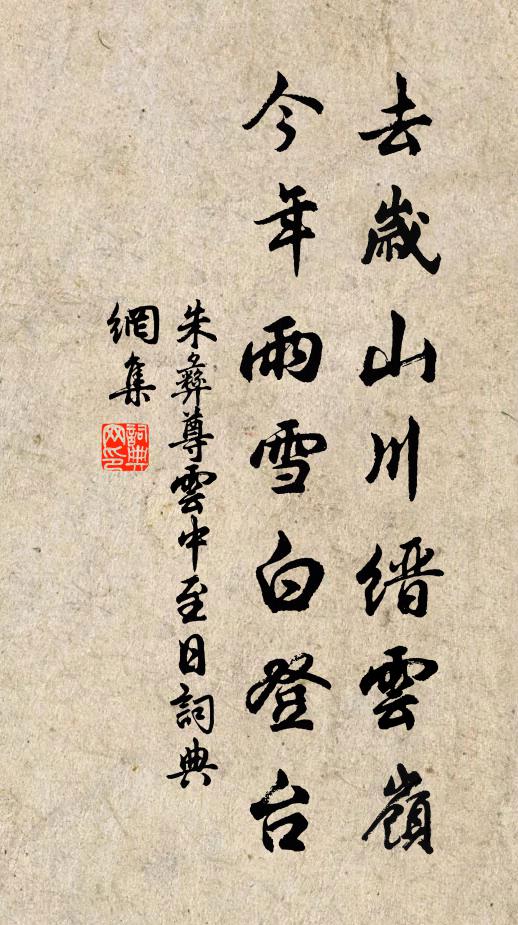 去歲山川縉雲嶺
今年雨雪白登台
朱彝尊雲中至日詞典
網集
詞典网印